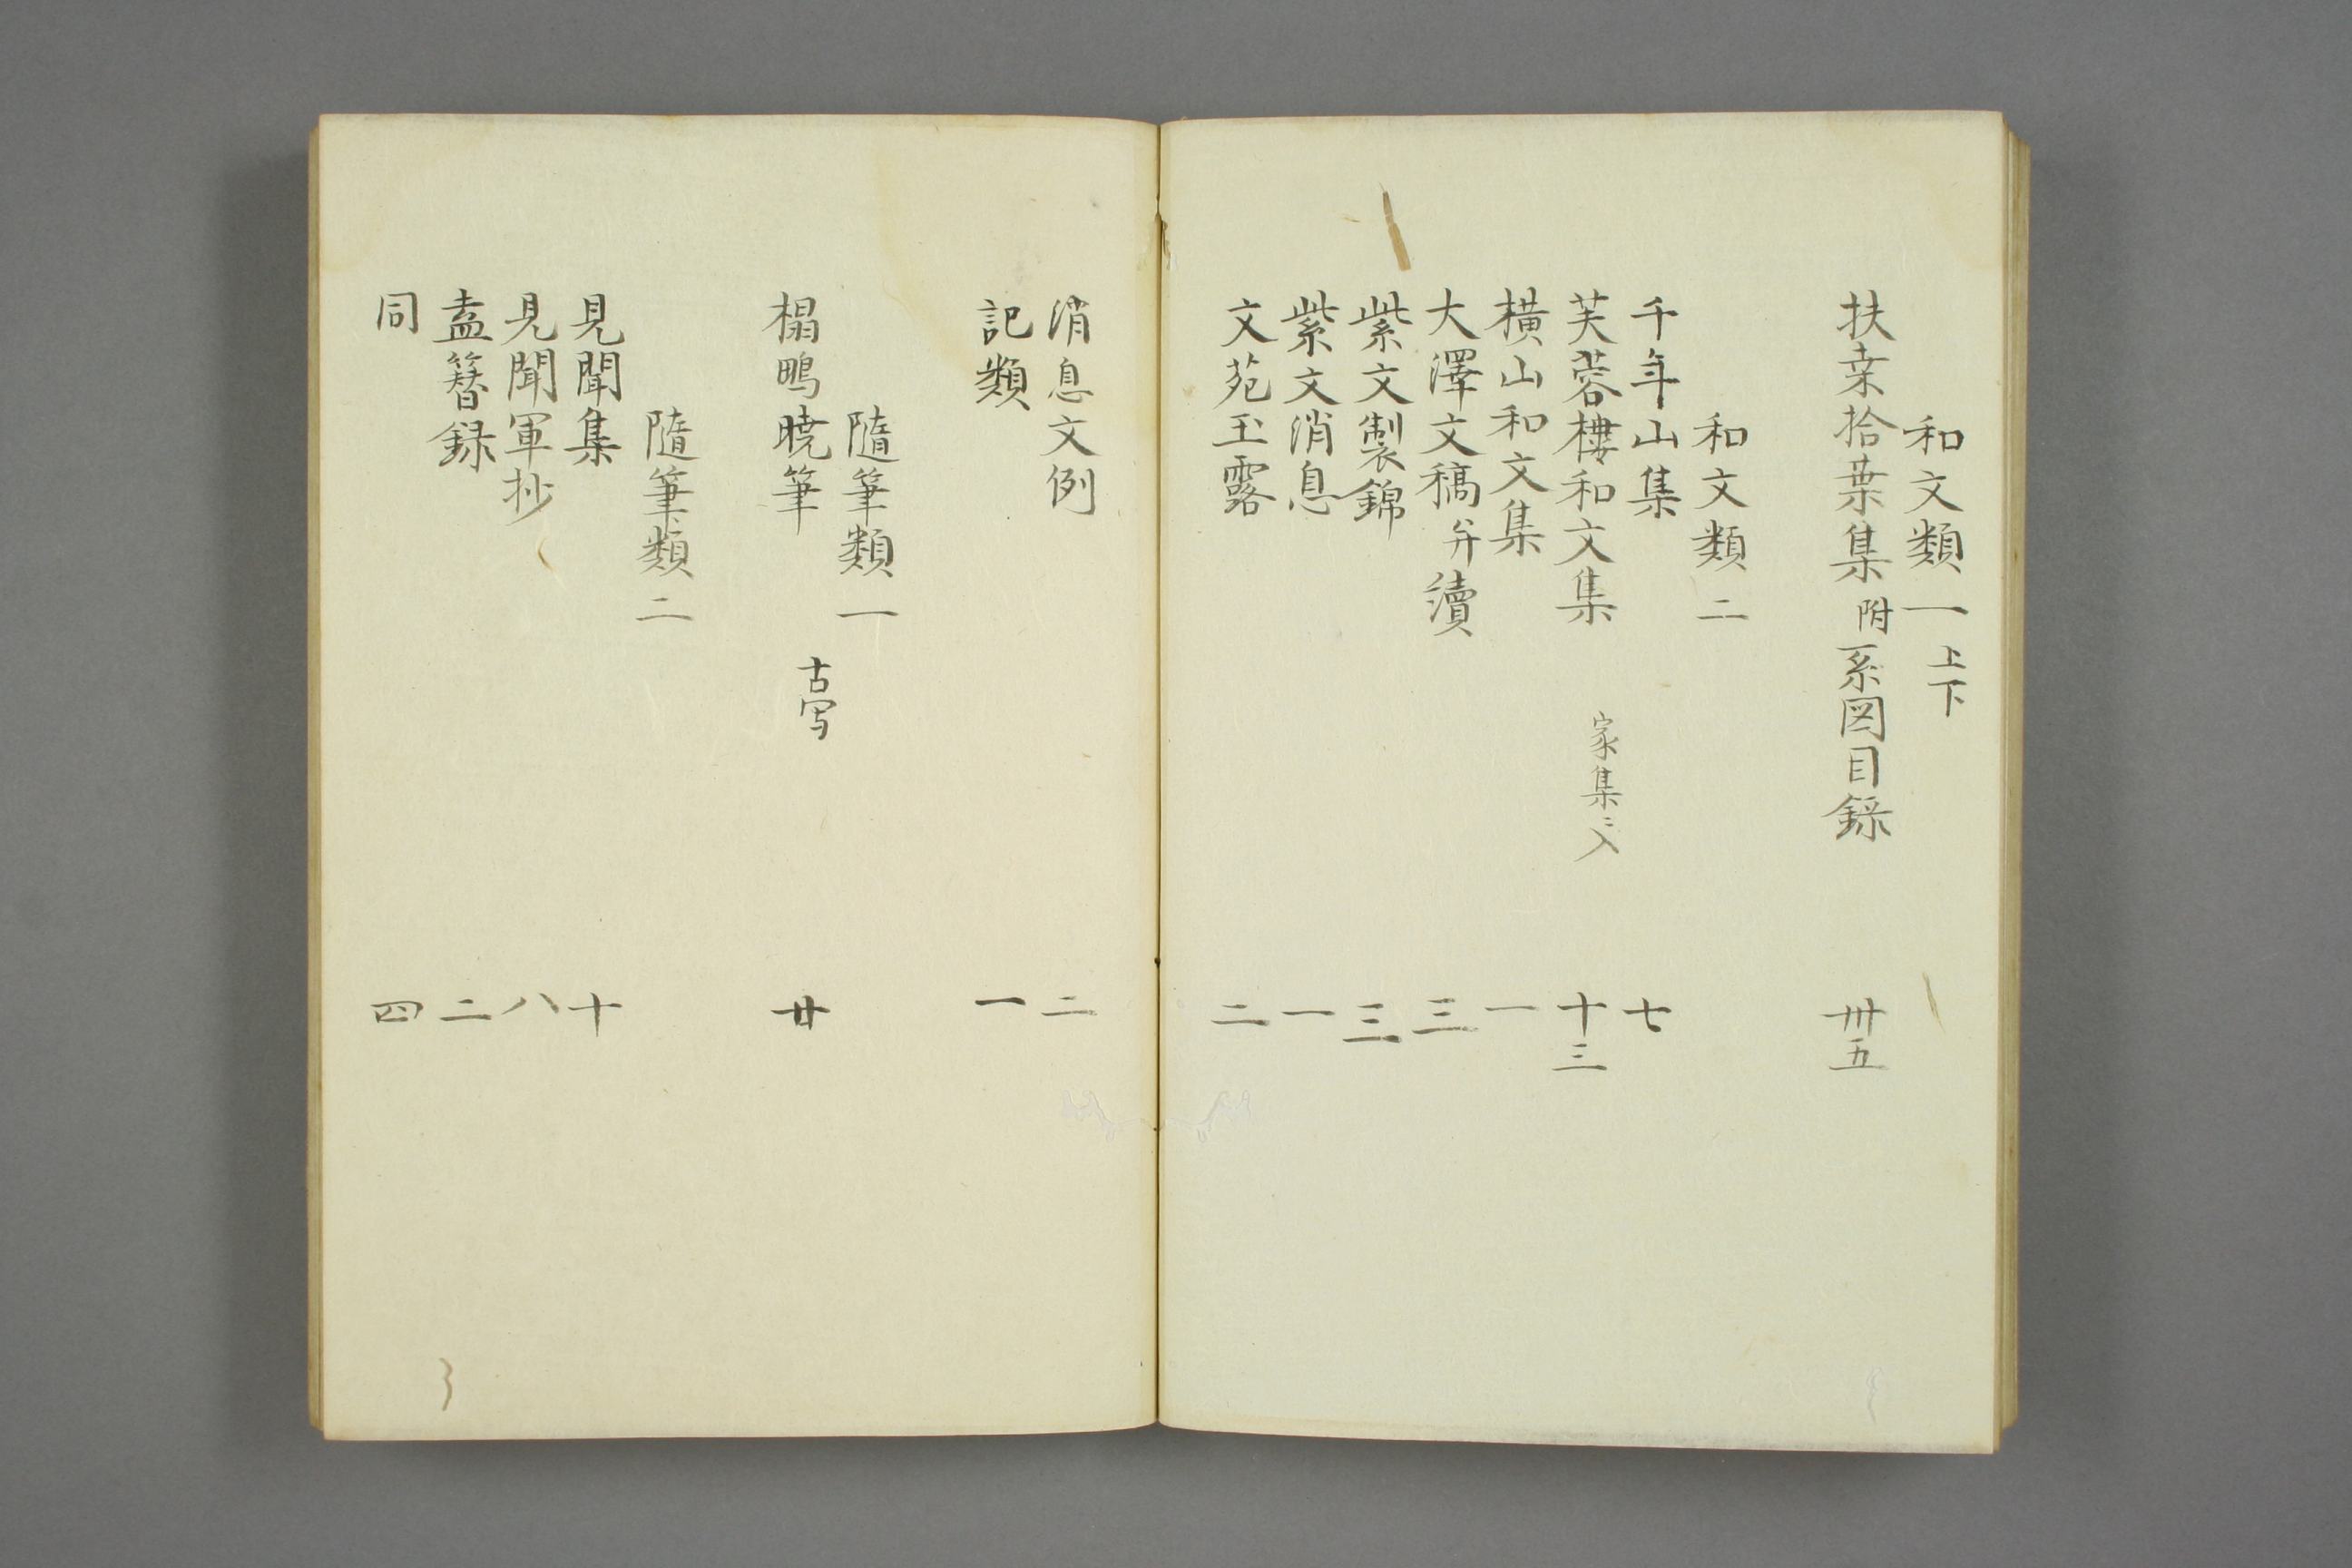 和文類一 上下
扶桒拾葉集 附系図目録 卅五
和文類二
千年山集 七
芙蓉樓和文集 家集ニ入 十三
横山和文集 一
大澤文稿 并續 三
紫文製錦 三
紫文消息 一
文苑玉露 二
消息文例 二
記類 一
隨筆類一
榻鴫暁筆 古写 廿
隨筆類二
見聞集 十
見聞軍抄 八
盍簪録 二
同 四